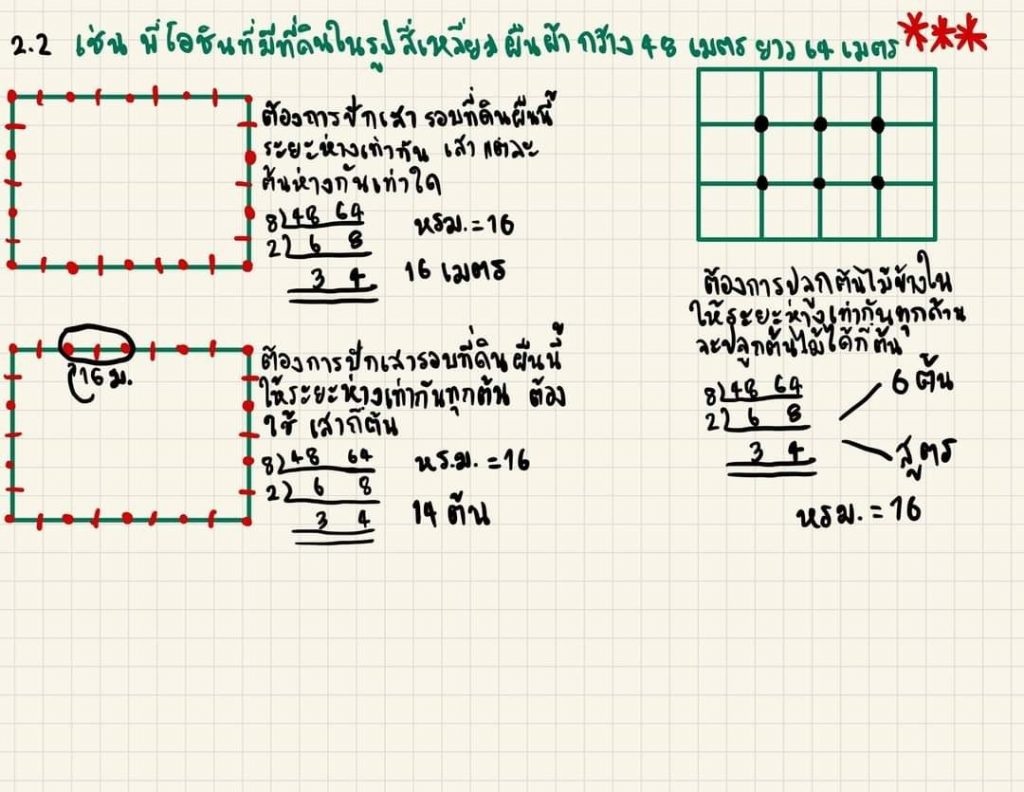 2.2 เช่น พี่โอชินที่มีที่ดินในรูปสี่เหลี่ยมผืนผ้า กว้าง 48 เมตร ยาว 64 เมตร ***
ต้องการปักเสา รอบที่ดินผืนนี้
ระยะห่างเท่ากัน เสา แต่ละ
ต้นห่างกันเท่าใด
8) 48 64
2) 6 8
3 4
หรม. = 16
16 เมตร
16 ม.
ต้องการปักเสารอบที่ดินผืนนี้
ให้ระยะห่างเท่ากันทุกต้น ต้อง
ใช้ เสากี่ต้น
8) 48 64
2) 6 8
3 4
หร.ม. = 16
14 ต้น
ต้องการปลูกต้นไม้ข้างใน
ให้ระยะห่างเท่ากันทุกด้าน
จะปลูกต้นไม้ได้กี่ต้น
8) 48 64
2) 6 8
3 4
6 ต้น
สูตร
หรม. = 16